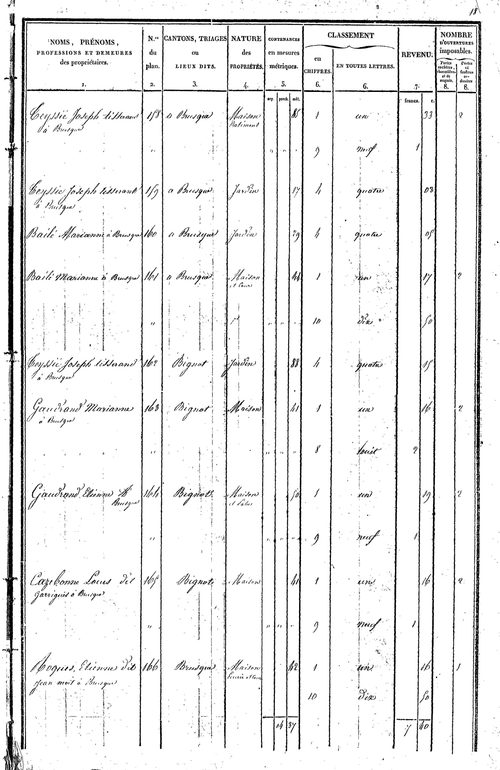 18
NOMS, PRÉNOMS,
PROFESSIONS ET DEMEURES
des propriétaires.
N.os
du
plan.
CANTONS, TRIAGES
ou
LIEUX DITS.
NATURE
des
PROPRIÉTÉS.
CONTENANCES
en mesures
métriques.
CLASSEMENT
en
CHIFFRES.
EN TOUTES LETTRES.
REVENU.
NOMBRE
D'OUVERTURES
imposables.
1. 2. 3. 4. 5. 6. 6. 7. 8. 8.
arp. perch. mèt. francs. c.
Teyssié Joseph tisserant 158 a Brusque Maison 1 un 33 2
à Brusque Batiment
" 9 neuf 1
Teyssié Joseph tisserant 159 a Brusque Jardin 17 4 quatre 03
à Brusque
Baïlé Marianne à Brusque 160 a Brusque Jardin 29 4 quatre 05
Baïlé Marianne à Brusque 161 a Brusque Maison 44 1 un 17 2
et Cour
" 10 dix 50
Teyssié Joseph tisserand 162 Bignot Jardin 33 4 quatre 05
à Brusque
Gaudrand Marianne 163 Bignot Maison 41 1 un 16 2
à Brusque
" 8 huit 2
Gaudrand Etienne 164 Bignot Maison 50 1 un 19 2
Brusque
" 9 neuf 1
Louis dit 165 Bignot Maison 41 1 un 16 2
Garrigues à Brusque
" 9 neuf 1
Roques, Etienne dit 166 Brusque Maison 42 1 un 16 1
à Brusque
10 dix 50
37 7 60